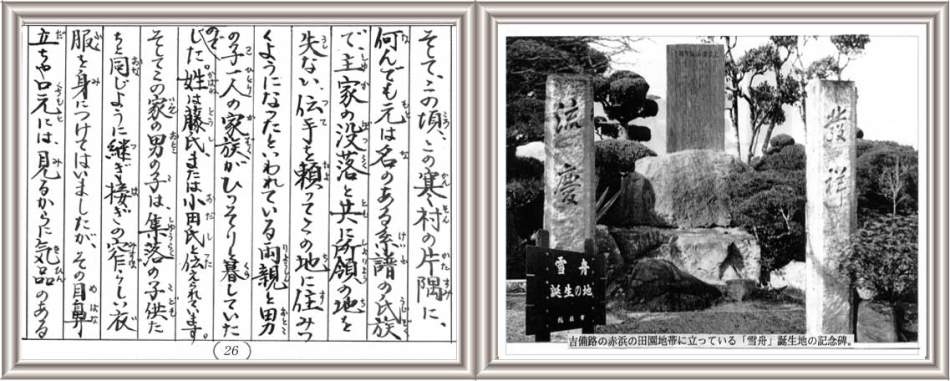 そして、この頃、この寒村の片隅に、
何んでも元は名のある系譜の氏族
で、主家の没落と共に所領の地を
失ない、伝手を頼ってこの地に住みつ
くようになったといわれている両親と男
の子一人の家族がひっそりと暮していた
のでした。姓は藤氏、または小田氏と伝えられています。
そしてこの家の男の子は、集落の子供た
ちと同じように継ぎ接ぎの窄らしい衣
服を身につけてはいましたが、その目鼻
立ちや口元には、見るからに気品のある
(26)
發祥
流慶
雪舟
誕生の地
吉備路の赤浜の田園地帯に立っている「雪舟」誕生地の記念碑。